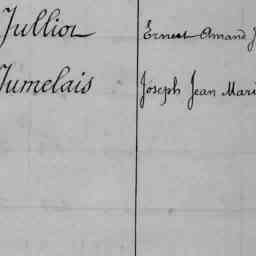 Julliot Ernest Amand J
Jumelais Joseph Jean Mari